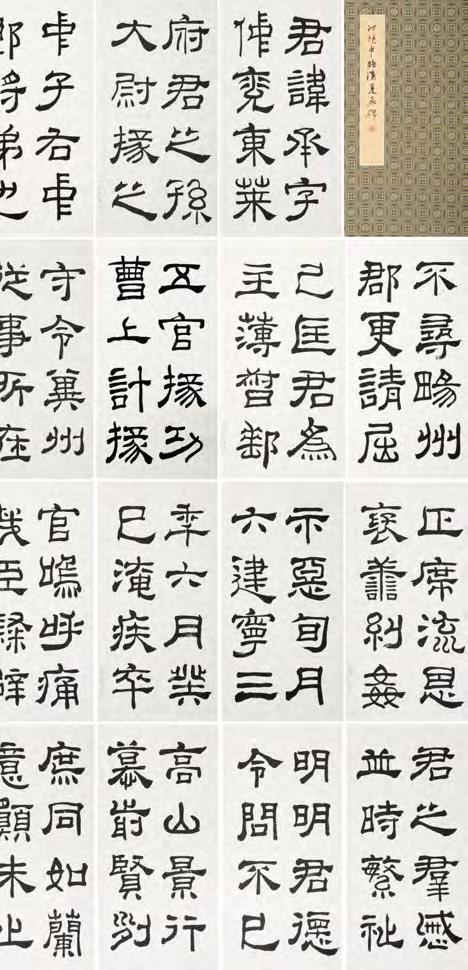 臨漢夏承碑
君諱承字
仲兖東萊
府君之孫
大尉掾之
中子右中
郎將弟也
不尋畼州
郡更請屈
己匡君為
主薄督郵
五官掾功
曹上計掾
守令冀州
從事所在
正席流恩
褒善糾姦
示惡旬月
六建寧三
秊六月癸
巳淹疾卒
官嗚呼痛
哉臣隸辟
君之羣慼
並時繁祉
明明君德
令問不已
高山景行
慕前賢列
庶同如蘭
意願未止